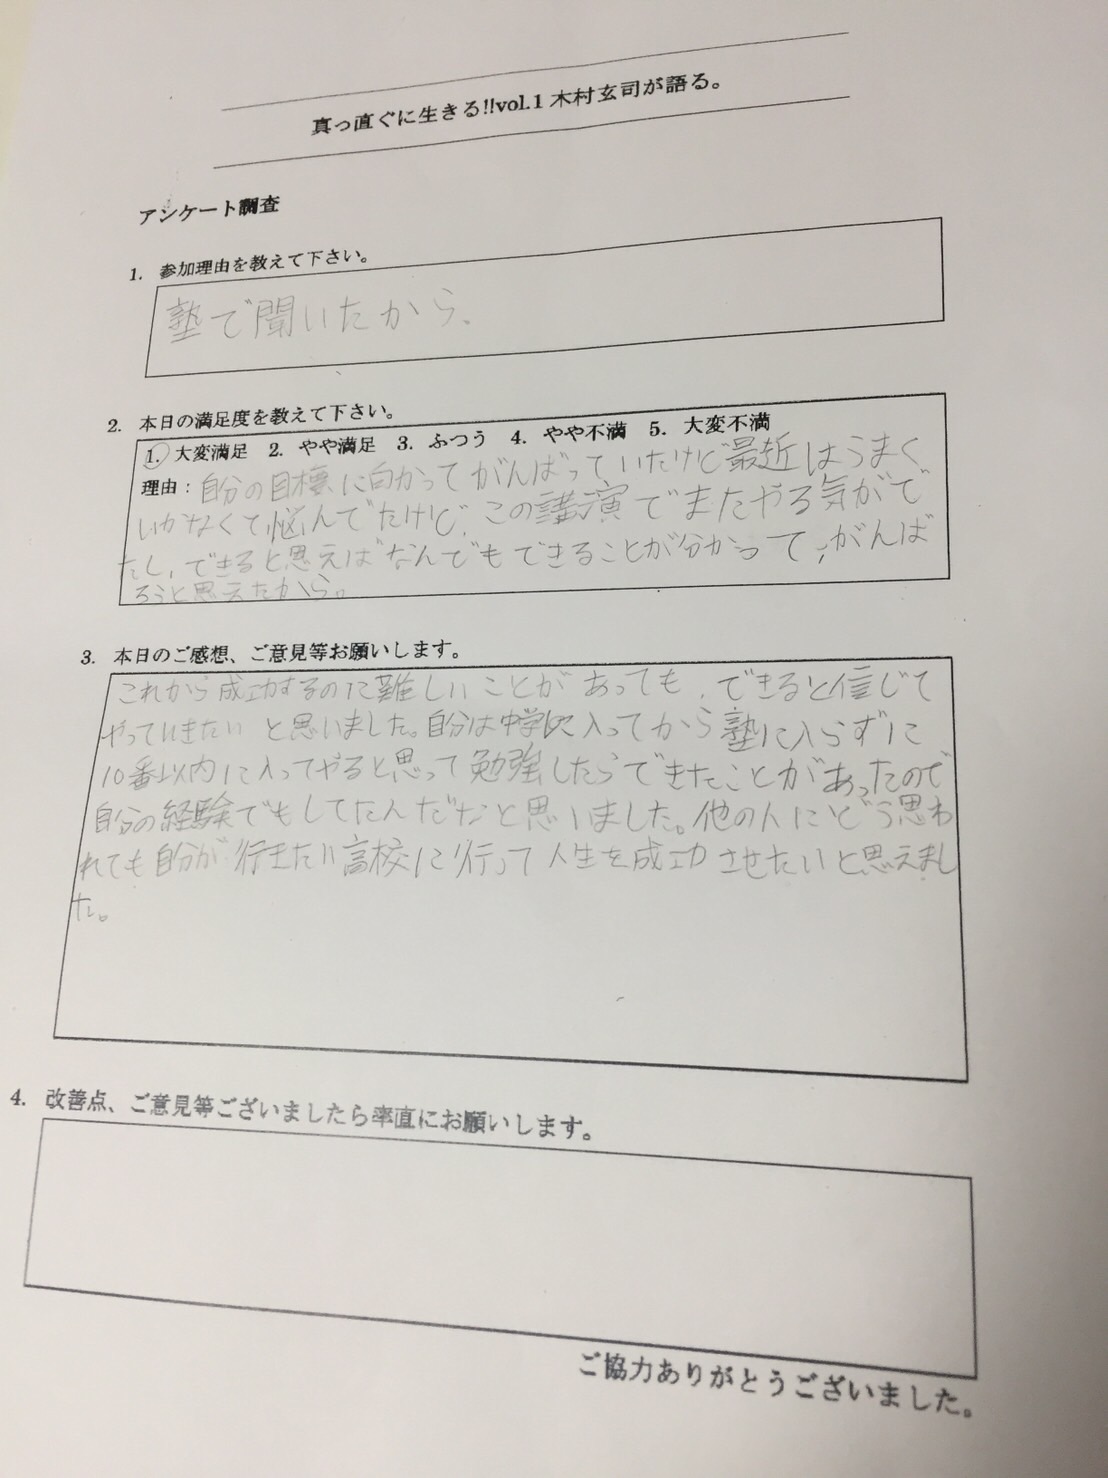 真っ直ぐに生きる!!vol.1 木村玄司が語る。
アンケート調査
1. 参加理由を教えて下さい。
塾で聞いたから、
2. 本日の満足度を教えて下さい。
1. 大変満足 2. やや満足 3. ふつう 4. やや不満 5. 大変不満
理由：自分の目標に向かってがんばっていたけど最近はうまく
いかなくて悩んでたけど、この講演でまたやる気がで
たし、できると思えばなんでもできることが分かって、がんば
ろうと思えたから。
3. 本日のご感想、ご意見等お願いします。
これから成功するのに難しいことがあっても、できると信じて
やっていきたいと思いました。自分は中学に入ってから塾に入らずに
10番以内に入ってやると思って勉強したらできたことがあったので
自分の経験でもしてたんだなと思いました。他の人にどう思わ
れても自分が行きたい高校に行って人生を成功させたいと思えまし
た。
4. 改善点、ご意見等ございましたら率直にお願いします。
ご協力ありがとうございました。